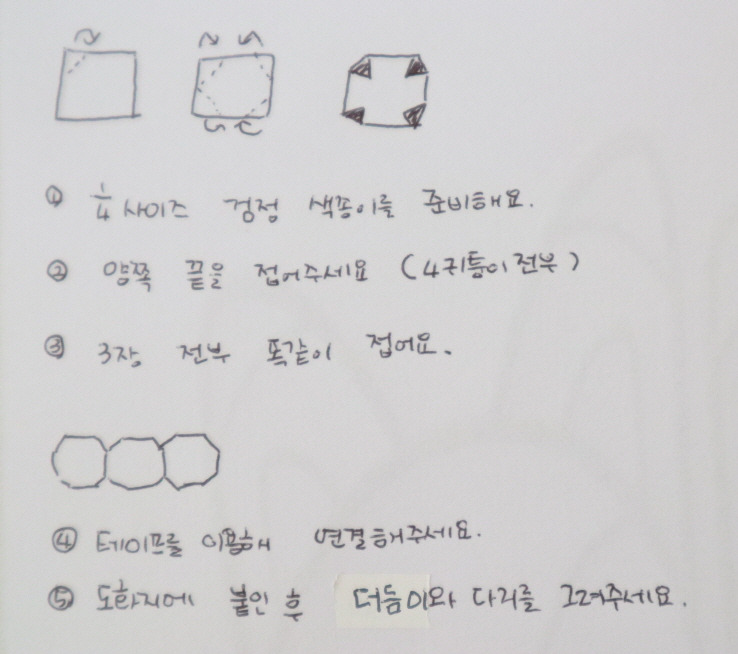 ① 1/4 사이즈 검정 색종이를 준비해요.
② 양쪽 끝을 접어주세요 (4귀퉁이전부)
③ 3장 전부 똑같이 접어요.
④ 테이프를 이용해 연결해주세요.
⑤ 도화지에 붙인 후 더듬이와 다리를 그려주세요.